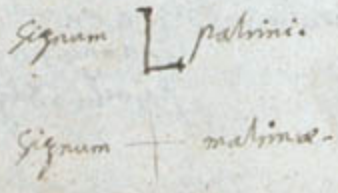 Signum L patrini.
Signum + matrinæ.